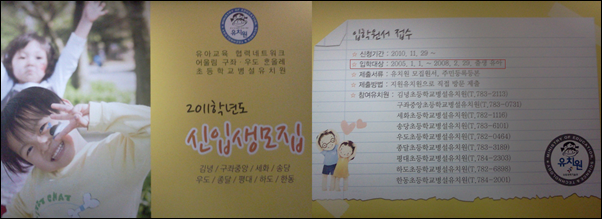 유치원
유아교육 협력네트워크
어울림 구좌·우도 혼올레
초등학교병설유치원
2011학년도
신입생모집
김녕 / 구좌중앙 / 세화 / 송당
우도 / 종달 / 평대 / 하도 / 한동
입학원서 접수
신청기간 : 2010. 11. 29 ~
입학대상 : 2005. 1. 1. ~ 2008. 2. 29. 출생 유아
제출서류 : 유치원 모집원서, 주민등록등본
제출방법 : 지원유치원으로 직접 방문 제출
참여유치원 : 김녕초등학교병설유치원(T.783-
구좌중앙초등학교병설유치원(T.783-
세화초등학교병설유치원(T.782-
송당초등학교병설유치원(T.783-
우도초등학교병설유치원(T.783-0464)
종달초등학교병설유치원(T.783-
평대초등학교병설유치원(T.784-2303)
하도초등학교병설유치원(T.782-
한동초등학교병설유치원(T.784-2001)
유치원